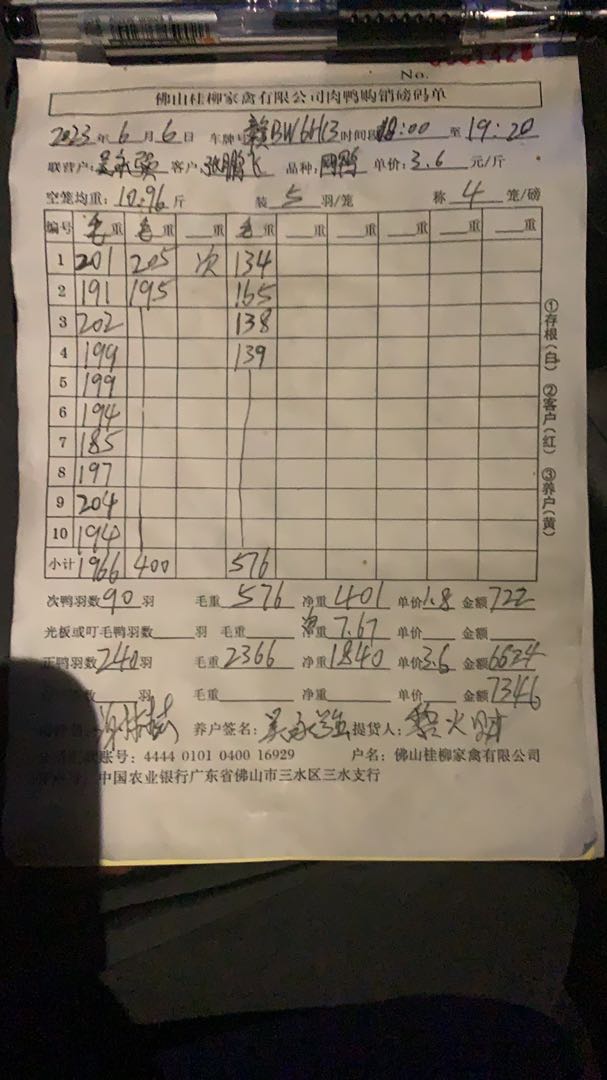 No. 
佛山桂柳家禽有限公司肉鸭购销磅码单
2023年6月6日 车牌:赣BW6H13时间段 :00至19:20
联营户: 客户:张鹏飞 品种: 单价:3.6元/斤
空笼均重:10.96斤 装5羽/笼 称4笼/磅
编号 毛重 毛重 重 毛重 重 重 重 重 重
1 201 205 次 134
2 191 195 165
3 202 138
4 199 139
5 199
6 194
7 185
8 197
9 204
10 194
小计 1966 400 576
次鸭羽数90羽 毛重576 净重401 单价1.8 金额722
光板或叮毛鸭羽数 羽 毛重 净重7.67 单价 金额
正鸭羽数240羽 毛重2366 净重1840 单价3.6 金额6624
数 羽 毛重 净重 单价 金额7346
养户签名: 提货人:黎火财
账号:4444 0101 0400 16929 户名:佛山桂柳家禽有限公司
中国农业银行广东省佛山市三水区三水支行
①存根(白) ②客户(红) ③养户(黄)